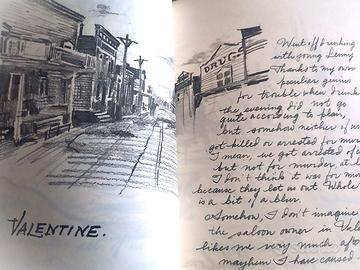 VALENTINE.
DRUGS
Went off drinking
with young Lenny
Thanks to my own
peculiar genius
for trouble when drunk
the evening did not go
quite according to plan,
but somehow neither of us
got killed or arrested for mur
I mean, we got arrested of a
but not for murder, at l
I don't think it was for mur
because they let us out. Whole
is a bit of a blur.
Somehow, I don't imagine
the saloon owner in Vale
likes me very much, after
mayhem I have caused